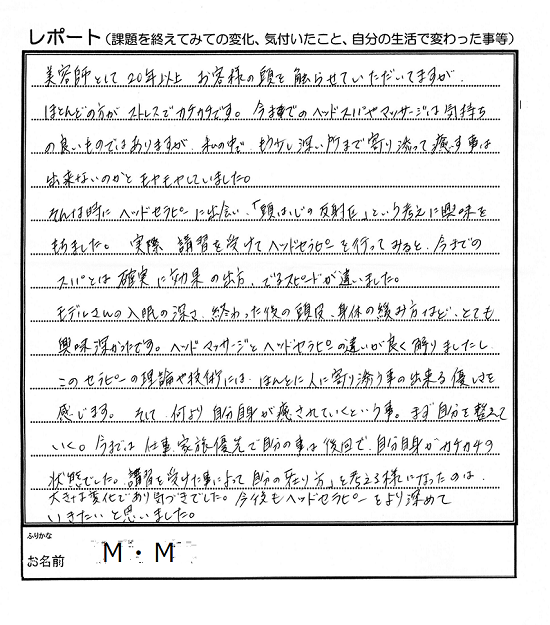 レポート(課題を終えてみての変化、気付いたこと、自分の生活で変わった事等)
美容師として20年以上 お客様の頭を触らせていただいてますが、
ほとんどの方が ストレスでカチカチです。今までのヘッドスパやマッサージは気持ち
の良いものではありますが、私の中で もう少し深い所まで寄り添って癒す事は
出来ないのかとモヤモヤしていました。
そんな時に ヘッドセラピーに出会い、「頭はじの反射区」という考えに興味を
もちました。 実際 講習を受けてヘッドセラピーを行ってみると、今までの
スパとは 確実に効果の出方、でるスピードが違いました。
モデルさんの入眠の深さ、終わった後の頭皮、身体の緩み方など、とても
興味深かったです。ヘッドマッサージとヘッドセラピーの違いが良く解りましたし
このセラピーの理論や技術には、ほんとに人に寄り添う事の出来る優しさを
感じます。 そして 何より自分自身が癒されていくという事。まず自分を整えて
いく。今までは 仕事 家族優先で自分の事は後回で、自分自身がカチカチの
状態でした。講習を受けた事によって自分の「在り方」を考える様になったのは、
大きな変化であり気づきでした。今後もヘッドセラピーをより深めて
いきたいと思いました。
ふりかな
お名前 M・M